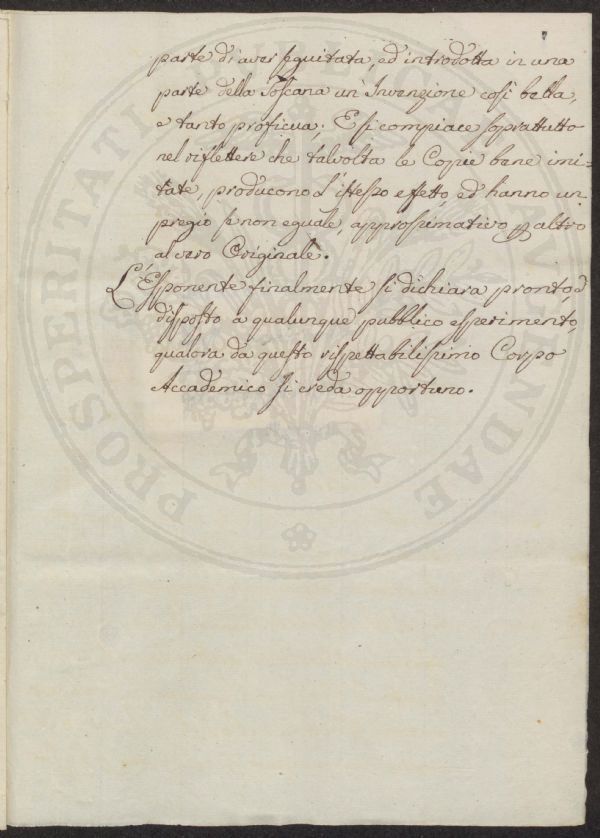 parte di aver seguitata, ed introdotta in una
parte della Toscana un' Invenzione così bella,
e tanto proficua; E si compiace soprattutto
nel riflettere che talvolta le Copie bene imi=
tate, producono l'istesso effetto, ed hanno un
pregio se non eguale, approssimativo p altro
al vero Originale.
L'Esponente finalmente si dichiara pronto, e
disposto a qualunque pubblico esperimento,
qualora da questo rispettabilissimo Corpo
Accademico si creda opportuno.
PROSPERITATI PUBLICAE AUGENDAE